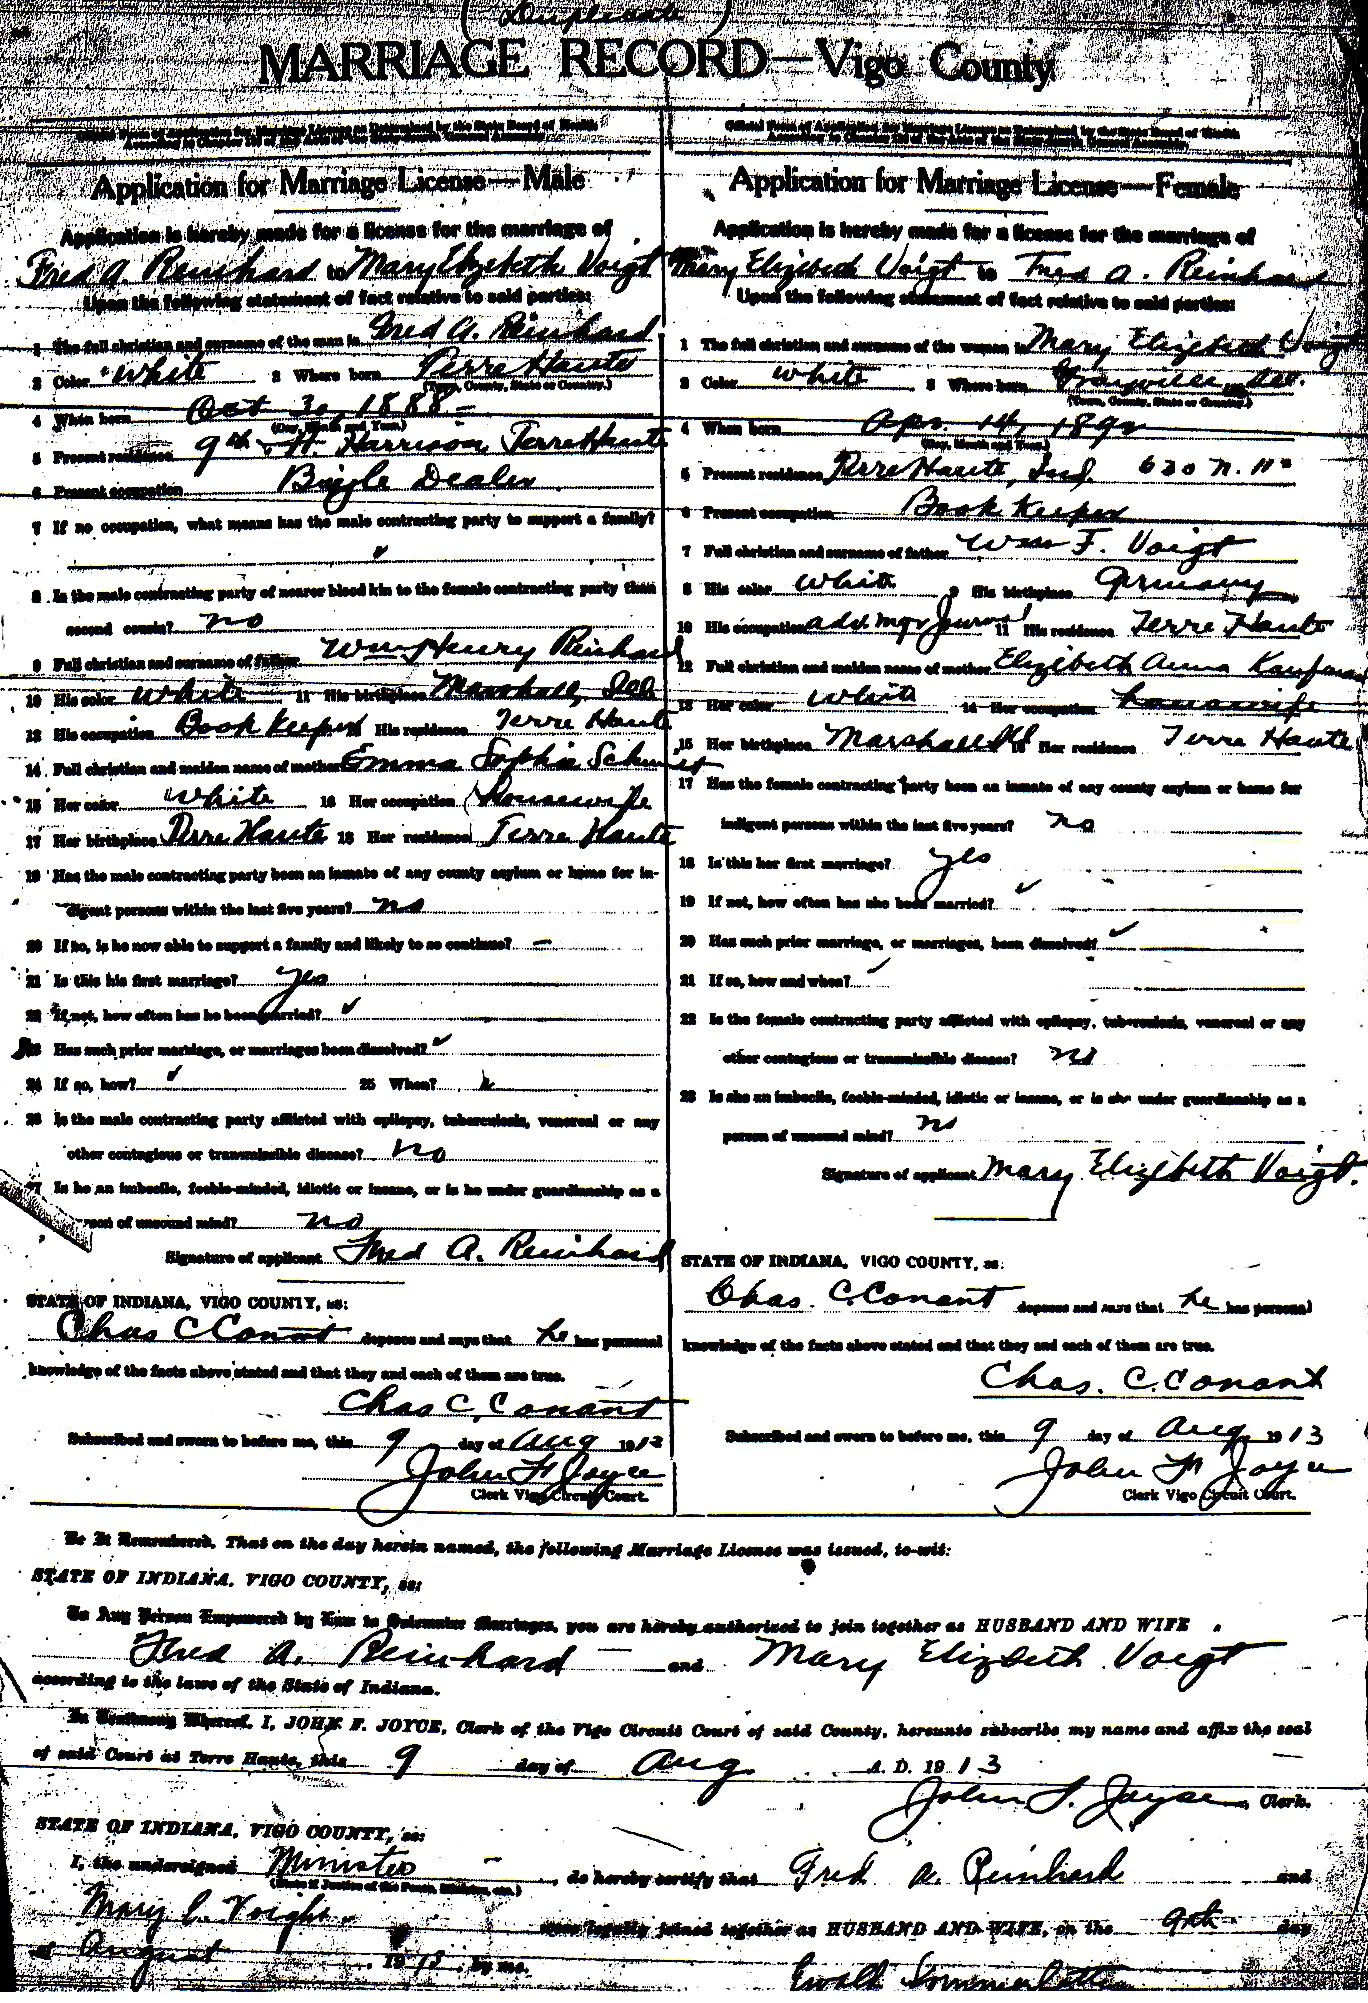 (Duplicate)
MARRIAGE RECORD—Vigo County
Application for Marriage License—Male
Application is hereby made for a license for the marriage of
Fred A. Reinhard to Mary Elizebeth Voigt
Upon the following statement of fact relative to said parties:
1 The full christian and surname of the man is Fred A. Reinhard
2 Color White 3 Where born Terre Haute
(Town, County, State or Country.)
4 When born Oct 30, 1888
(Day, Month and Year.)
5 Present residence 9th & Harrison, Terre Haute
6 Present occupation Bicycle Dealer
7 If no occupation, what means has the male contracting party to support a family?
8 Is the male contracting party of nearer blood kin to the female contracting party than
second cousin? no
9 Full christian and surname of father Wm Henry Reinhard
10 His color White 11 His birthplace Marshall, Ills
12 His occupation Book Keeper 13 His residence Terre Haute
14 Full christian and maiden name of mother Emma Sophia
15 Her color White 16 Her occupation Housewife
17 Her birthplace Terre Haute 18 Her residence Terre Haute
19 Has the male contracting party been an inmate of any county asylum or home for in-
digent persons within the last five years? no
20 If so, is he now able to support a family and likely to so continue? —
21 Is this his first marriage? yes
22 If not, how often has he been married? ✓
23 Has such prior marriage, or marriages been dissolved? ✓
24 If so, how? ✓ 25 When?
26 Is the male contracting party afflicted with epilepsy, tuberculosis, venereal or any
other contagious or transmissible disease? no
27 Is he an imbecile, feeble-minded, idiotic or insane, or is he under guardianship as a
person of unsound mind? no
Signature of applicant Fred A. Reinhard
STATE OF INDIANA, VIGO COUNTY, ss:
Chas C Conant deposes and says that he has personal
knowledge of the facts above stated and that they and each of them are true.
Chas C. Conant
Subscribed and sworn to before me, this 9 day of Aug 1913
John F Joyce
Clerk Vigo Circuit Court.
Application for Marriage License—Female
Application is hereby made for a license for the marriage of
Mary Elizebeth Voigt to Fred A. Reinhard
Upon the following statement of fact relative to said parties:
1 The full christian and surname of the woman is Mary Elizebeth Voigt
2 Color White 3 Where born
(Town, County, State or Country.)
4 When born Apr. 14, 1892
(Day, Month and Year.)
5 Present residence Terre Haute, Ind. 630 N. 11th
6 Present occupation Book Keeper
7 Full christian and surname of father Wm F. Voigt
8 His color White 9 His birthplace Germany
10 His occupation adv. mgr Journal 11 His residence Terre Haute
12 Full christian and maiden name of mother Elizebeth Anna
13 Her color White 14 Her occupation housewife
15 Her birthplace Marshall Ill 16 Her residence Terre Haute
17 Has the female contracting party been an inmate of any county asylum or home for
indigent persons within the last five years? no
18 Is this her first marriage? yes
19 If not, how often has she been married? ✓
20 Has such prior marriage, or marriages, been dissolved? ✓
21 If so, how and when? ✓
22 Is the female contracting party afflicted with epilepsy, tuberculosis, venereal or any
other contagious or transmissible disease? no
23 Is she an imbecile, feeble-minded, idiotic or insane, or is she under guardianship as a
person of unsound mind? no
Signature of applicant Mary Elizebeth Voigt.
STATE OF INDIANA, VIGO COUNTY, ss:
Chas. C. Conant deposes and says that he has personal
knowledge of the facts above stated and that they and each of them are true.
Chas. C. Conant
Subscribed and sworn to before me, this 9 day of Aug 1913
John F Joyce
Clerk Vigo Circuit Court.
Be It Remembered, That on the day herein named, the following Marriage License was issued, to-wit:
STATE OF INDIANA, VIGO COUNTY, ss:
To Any Person Empowered by Law to Solemnize Marriages, you are hereby authorized to join together as HUSBAND AND WIFE
Fred A. Reinhard and Mary Elizebeth Voigt
according to the laws of the State of Indiana.
In Testimony Whereof, I, JOHN F. JOYCE, Clerk of the Vigo Circuit Court of said County, hereunto subscribe my name and affix the seal
of said Court at Terre Haute, this 9 day of Aug A. D. 1913
John F. Joyce, Clerk.
STATE OF INDIANA, VIGO COUNTY, ss:
I, the undersigned Minister, do hereby certify that Fred A. Reinhard and
(State if Justice of the Peace, Minister, etc.)
Mary E. Voight were legally joined together as HUSBAND AND WIFE, on the 9th day
of August, 1913, by me.
Ewald